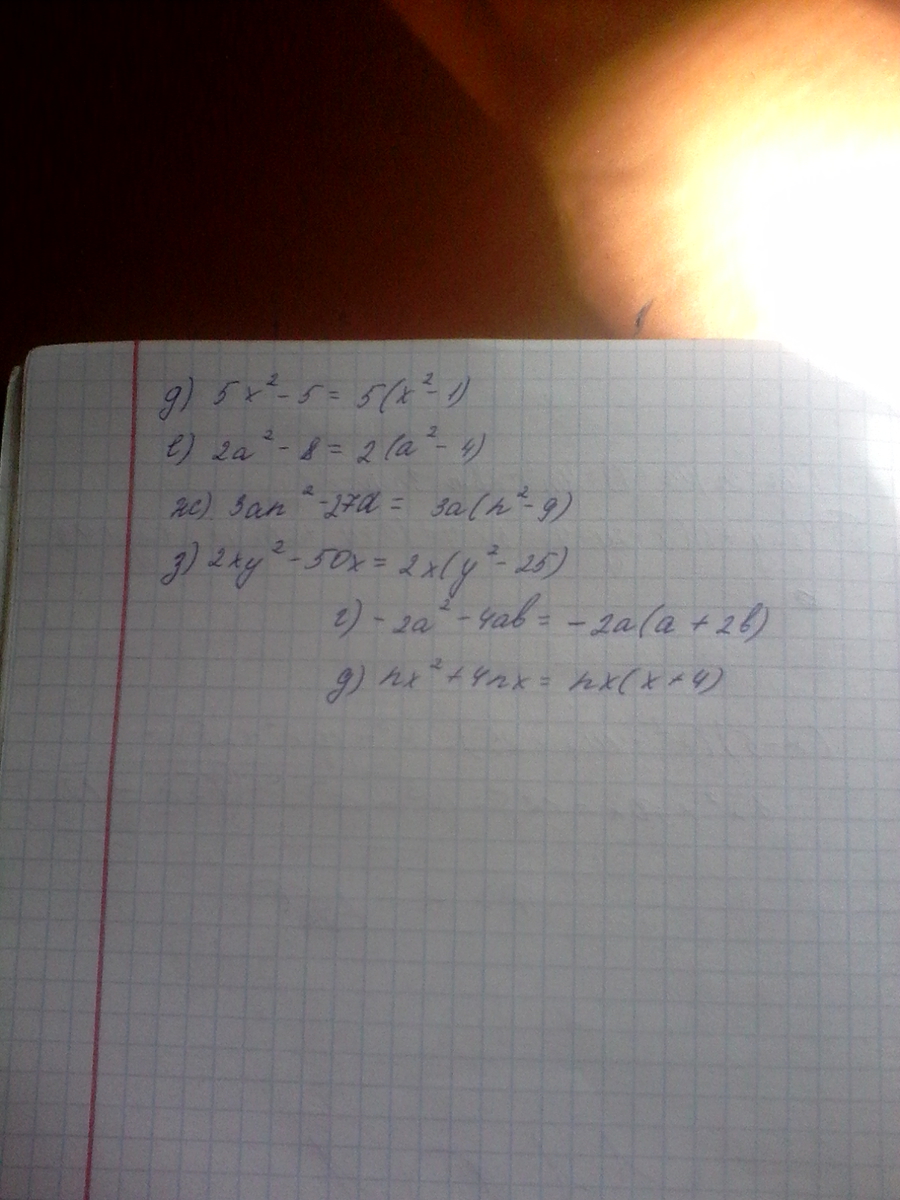 д) 5x² - 5 = 5(x² - 1)
е) 2a² - 8 = 2(a² - 4)
ж) 3an² - 27a = 3a(n² - 9)
з) 2xy² - 50x = 2x(y² - 25)
г) - 2a² - 4ab = - 2a(a + 2b)
д) nx² + 4nx = nx(x + 4)